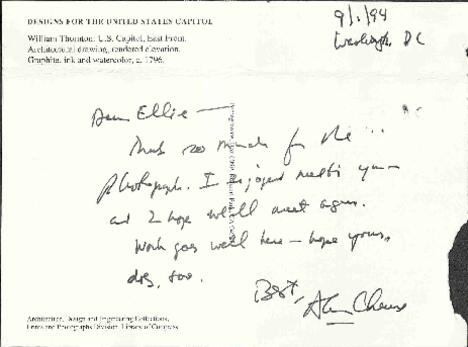 DESIGNS FOR THE UNITED STATES CAPITOL
William Thornton: U.S. Capitol, East Front.
Architectural drawing, rendered elevation.
Graphite, ink and watercolor, c. 1796.
9/1/94
Washington, DC
Dear Ellie —
Thanks so much for the
photograph. I enjoyed meeting you —
and I hope we'll meet again.
Work goes well here — hope yours
does, too.
Best,
Alan Cheuse
Architecture, Design and Engineering Collections,
Prints and Photographs Division, Library of Congress